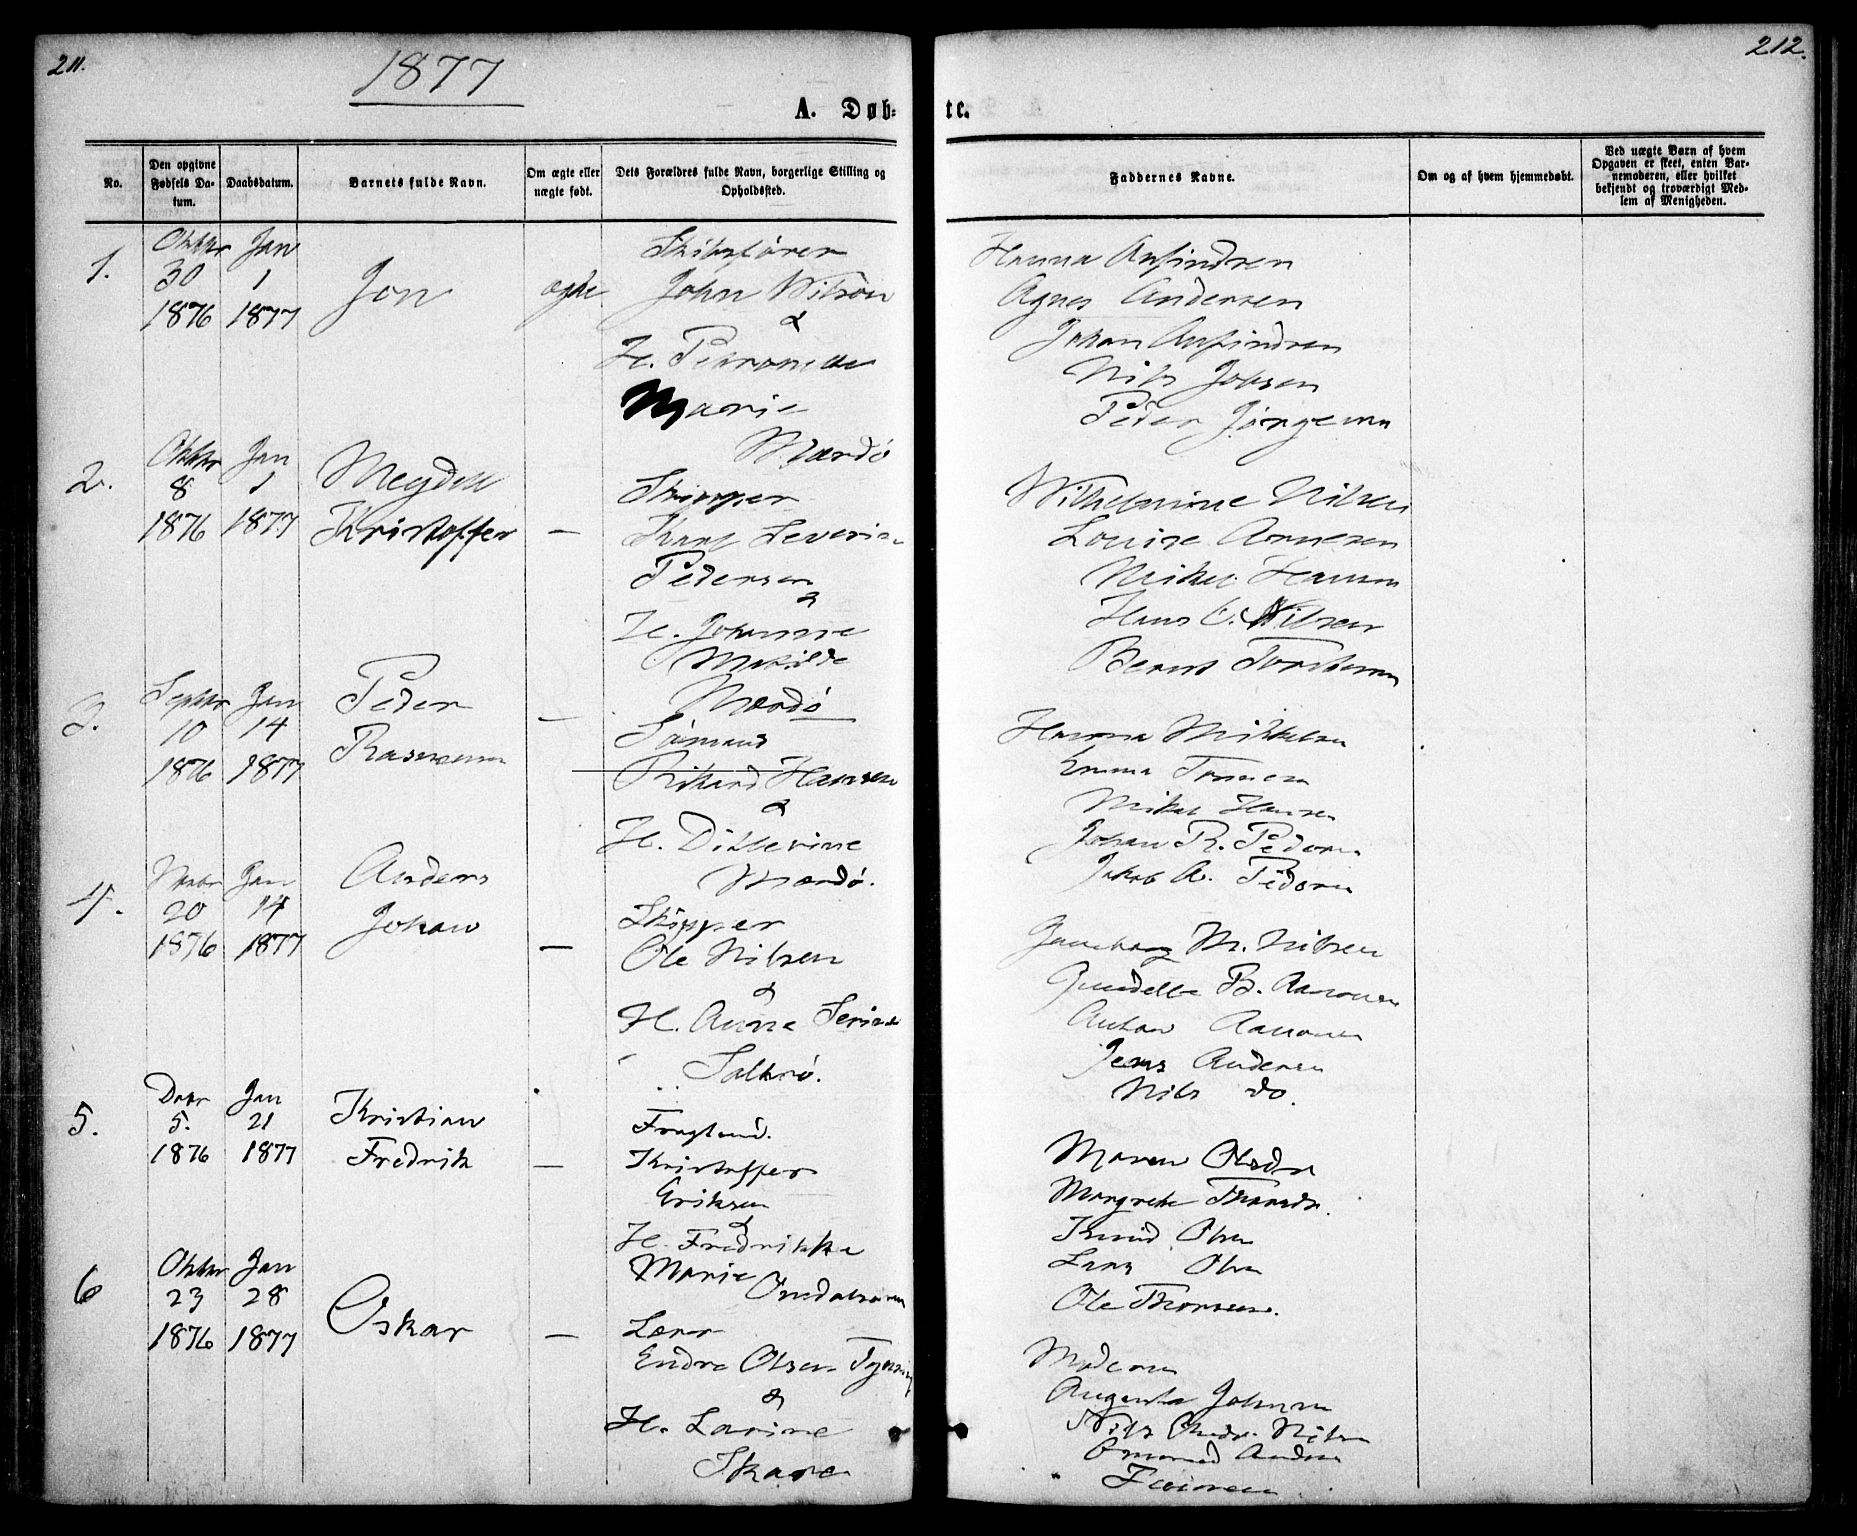 211.
1877
A. Døb-
No.
Den opgivne Fødsels Da-tum.
Daabsdatum.
Barnets fulde Navn.
Om ægte eller uægte født.
Dets Forældres fulde Navn, borgerlige Stilling og Opholdssted.
1.
Oktbr 30 1876
Jan 1 1877
Jon
ægte
John Wilson
&
H. Petronelle
Marie
Mærdø
2.
Oktbr 8 1876
Jan 1 1877
Kristoffer
—
Skipper
Severin
Pedersen
&
H. Johanne
Matilde
Mærdø
3.
Septbr 10 1876
Jan 14 1877
Peder
Rasmus
—
Sømand
Rikard Hansen
&
H. Ditlevine
Mærdø.
4.
Novbr 20 1876
Jan 14 1877
Anders
Johan
—
Skipper
Ole Nilsen
&
H. Anne Serine
Salterø.
5.
Decbr 5. 1876
Jan 21 1877
Kristian
Fredrik
—
Kristoffer
Eriksen
&
H. Fredrikke
Marie
6
Oktbr 23 1876
Jan 28 1877
Oskar
—
Lærer
Endre Olsen
&
H. Larine
Skare
212.
te.
Faddernes Navne.
Om og af hvem hjemmedøbt.
Ved uægte Børn af hvem Opgaven er skeet, enten Bar-nemoderen, eller hvilket bekjendt og troværdigt Med-lem af Menigheden.
Hanna Anfindsen
Agnes Andersen
Johan Anfindsen
Nils Jobsen
Peder Jørgensen
Wilhelmine Nilsen
Louise Arnesen
Mikel Hansen
Hans C. Nilsen
Bernt Torstensen
Hanna Mikkelsen
Emma
Mikel Hansen
Johan R. Pedersen
Jakob A. Pedersen
M. Nilsen
B. Aanonsen
Anton Aanonsen
Jens Andersen
Nils do.
Maren Olsdr
Margrete Thorsdr.
Knud Olsen
Lars Olsen
Ole Thorsen.
Moderen
Augusta Johnsen
Nils Andr. Nilsen